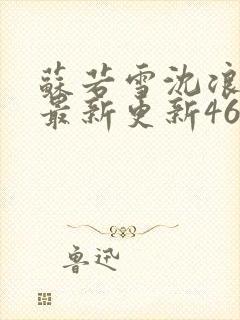 蘇若雪沈浪
最新更新46
鲁迅